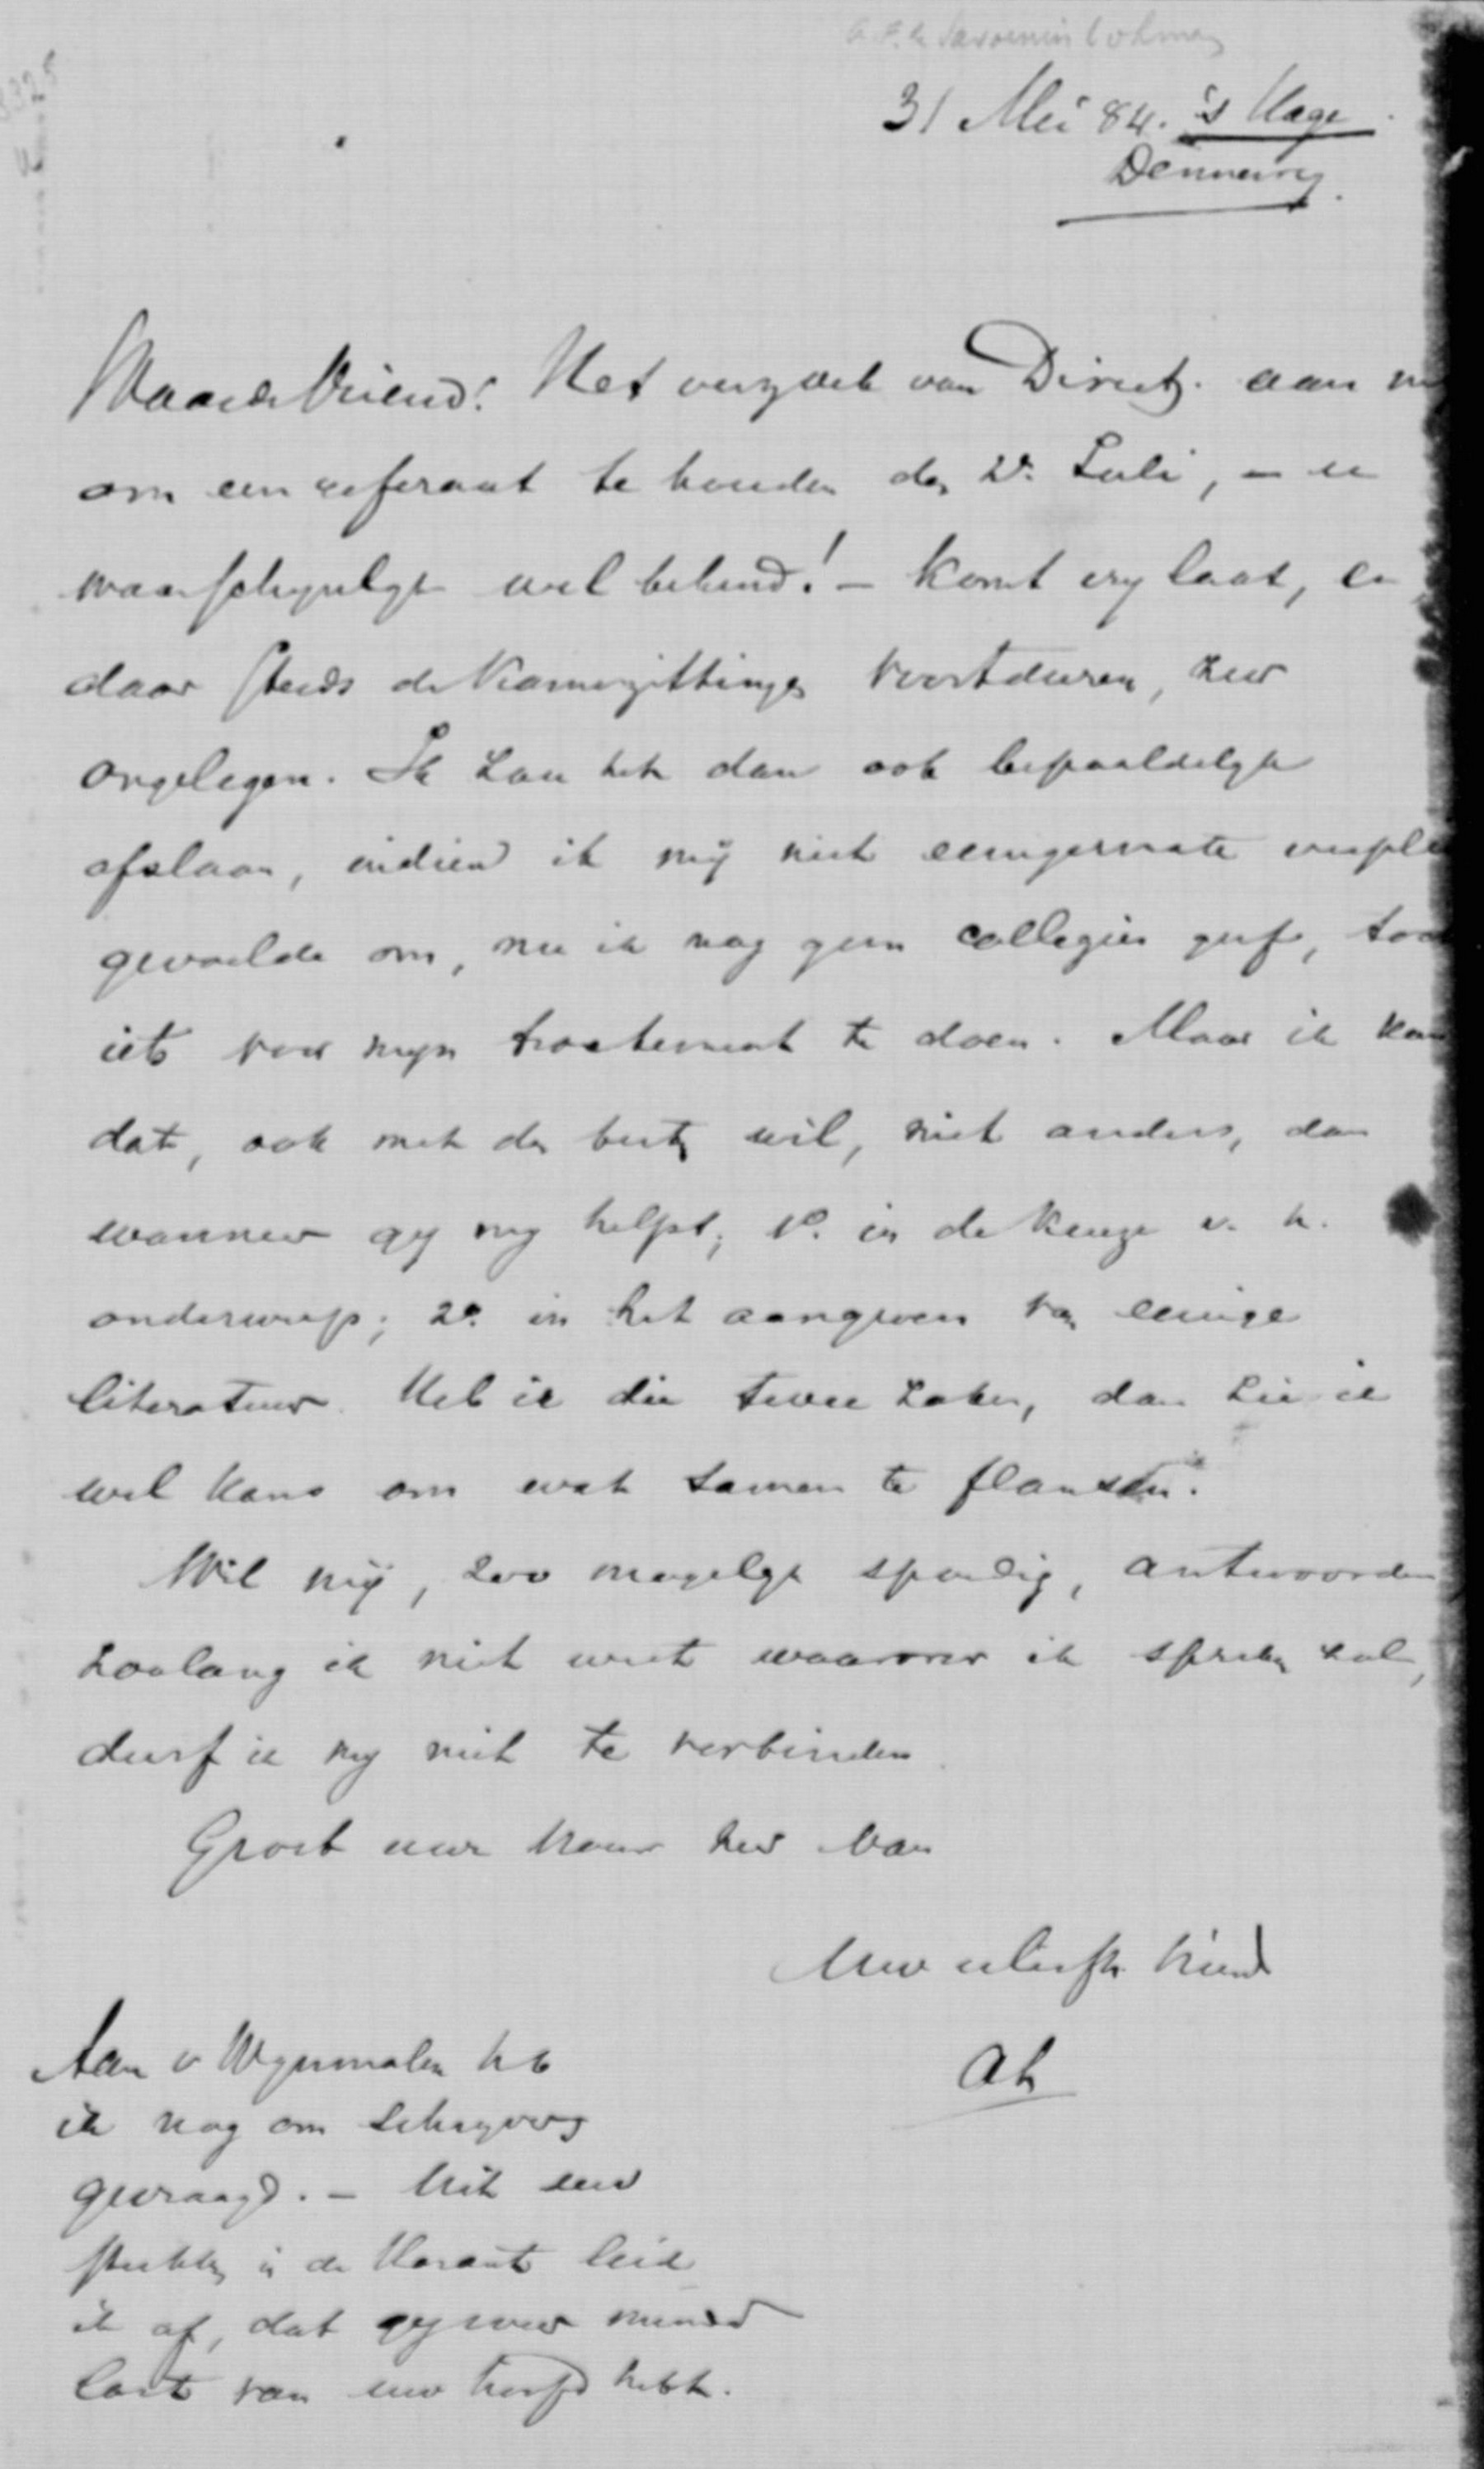 A.F. de Savornin Lohman
31 Mei 84. 's Hage
Denneweg.
Waarde Vriend! Het verzoek van Direct. aan m
om een referaat te houden den 2e Juli, – u
waarschynlyk wel bekend! – komt my laat, en
daar steeds de Kamerzittingen voortduren, zeer
ongelegen. Ik zou het dan ook bepaaldelyk
afslaan, indien ik mij niet eenigermate verpli
gevoelde om, nu ik nog geen collegies geef, toch
iets voor myn tractement te doen. Maar ik kan
dat, ook met den besten wil, niet anders, dan
wanneer gy my helpt; 1o. in de keuze v. h.
onderwerp; 2o. in het aangeven van eenige
literatuur. Heb ik die twee zaken, dan zie ik
wel kans om wat samen te flansen.
Wil mij, zoo mogelyk spoedig, antwoorden
Zoolang ik niet weet waarover ik spreken zal,
durf ik my niet te verbinden.
Groet uwe vrouw zeer van
Uw vriend
AL
Aan v Wynmalen heb
ik nog om
gevraagd. – Uit uw
stukken in de Heraut leid
ik af, dat gy weer minder
last van uw hoofd hebt.